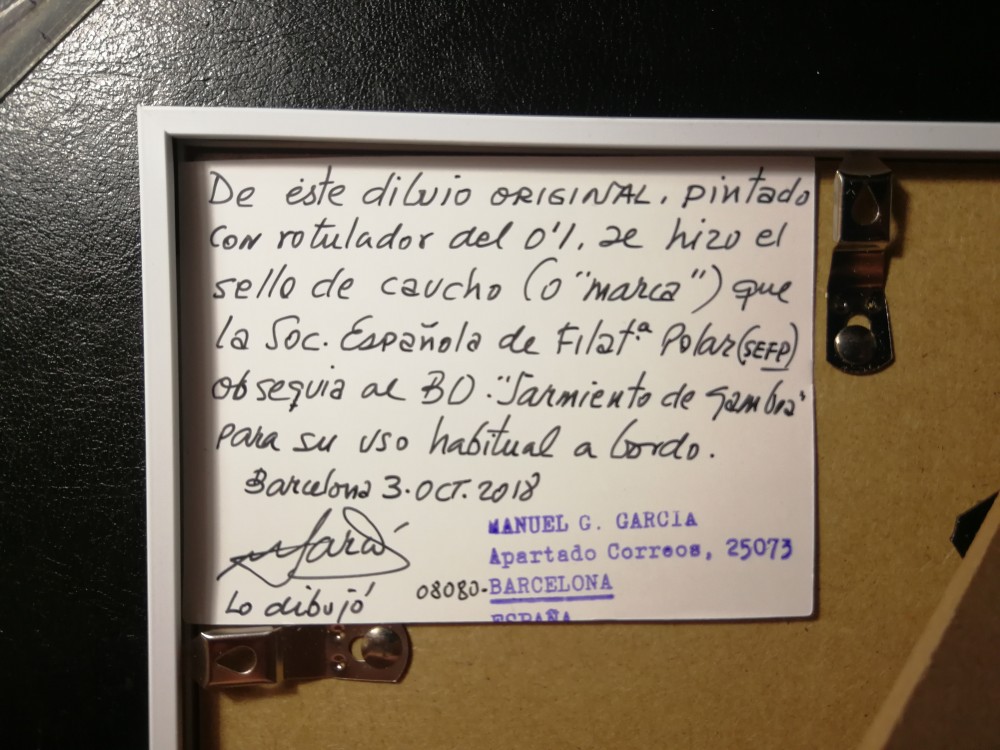 De éste dibujo ORIGINAL, pintado
con rotulador del 0'1, se hizo el
sello de caucho (o "marca") que
la Soc. Española de Filatª Polar (SEFP)
obsequia al BO. "Sarmiento de Gamboa"
para su uso habitual a bordo.
Barcelona 3. OCT. 2018
MANUEL G. GARCIA
Apartado Correos, 25073
08080-BARCELONA
Lo dibujó
ESPAÑA